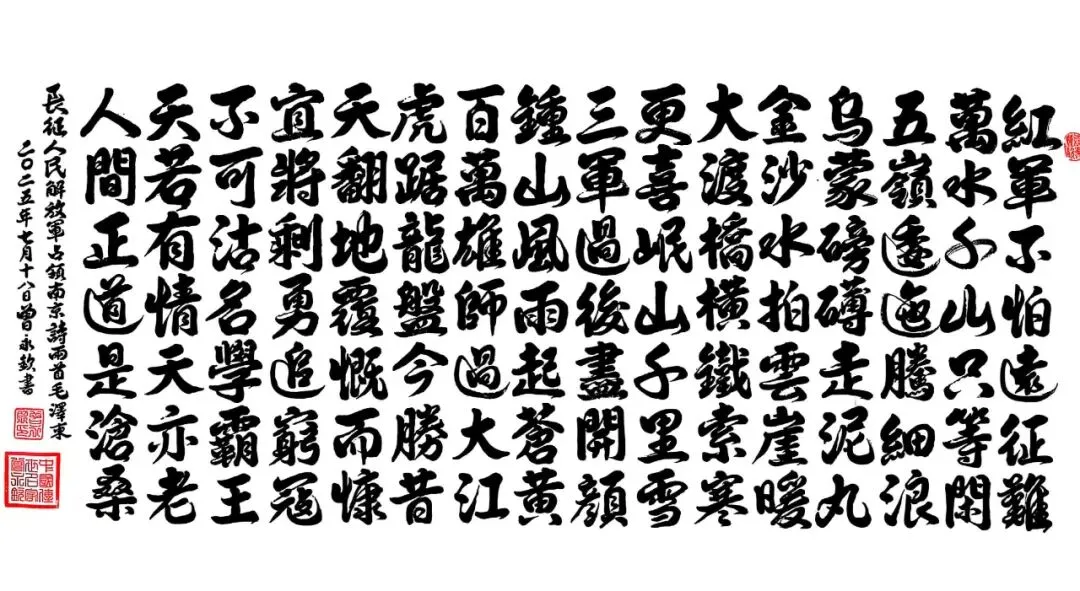 紅軍不怕遠征難
萬水千山只等閑
五嶺逶迤騰細浪
乌蒙磅礴走泥丸
金沙水拍雲崖暖
大渡橋橫鐵索寒
更喜岷山千里雪
三軍過後盡開顏
鍾山風雨起蒼黃
百萬雄師過大江
虎踞龍盤今勝昔
天翻地覆慨而慷
宜將剩勇追窮寇
不可沽名學霸王
天若有情天亦老
人間正道是滄桑
長征人民解放軍占領南京詩兩首毛澤東
二〇二五年七月十八日曾永欽書